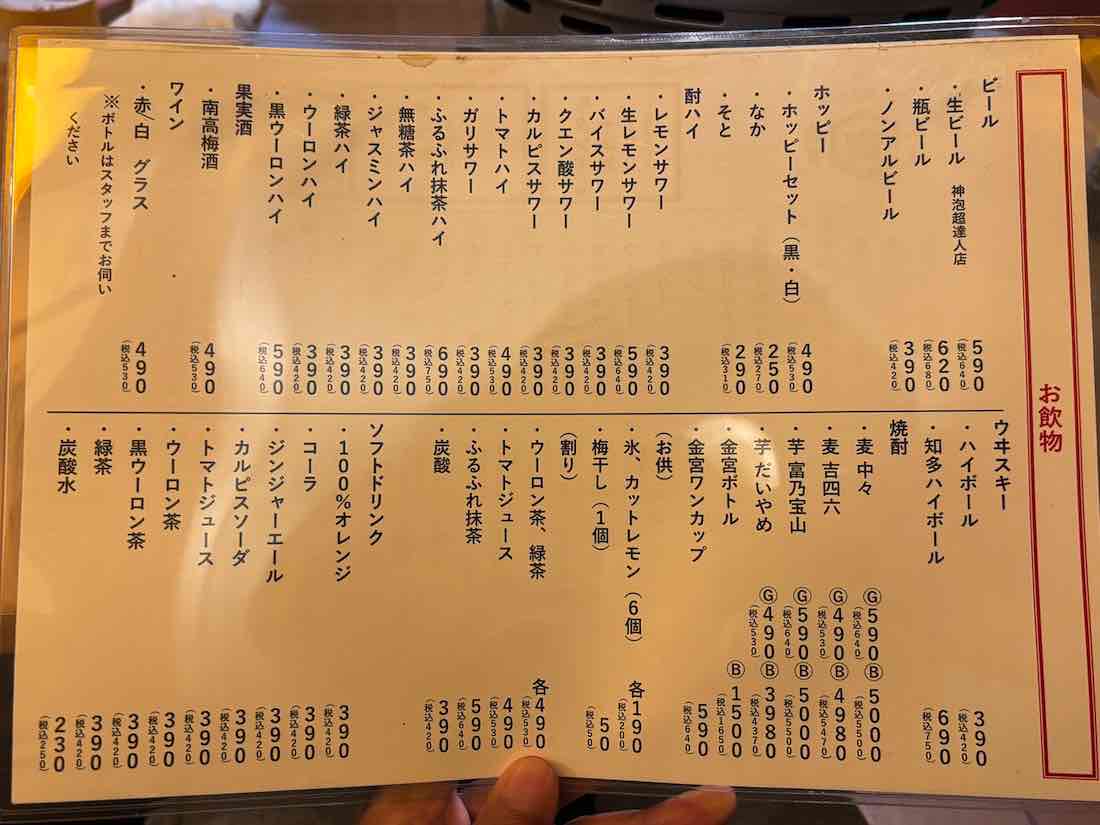 お飲物
ビール
・生ビール 神泡超達人店 590 (税込640)
・瓶ビール 620 (税込680)
・ノンアルビール 390 (税込420)
ホッピー
・ホッピーセット(黒・白) 490 (税込530)
・なか 250 (税込270)
・そと 290 (税込310)
酎ハイ
・レモンサワー 390 (税込420)
・生レモンサワー 590 (税込640)
・バイスサワー 390 (税込420)
・クエン酸サワー 390 (税込420)
・カルピスサワー 390 (税込420)
・トマトハイ 490 (税込530)
・ガリサワー 390 (税込420)
・ふるふれ抹茶ハイ 690 (税込750)
・無糖茶ハイ 390 (税込420)
・ジャスミンハイ 390 (税込420)
・緑茶ハイ 390 (税込420)
・ウーロンハイ 390 (税込420)
・黒ウーロンハイ 590 (税込640)
果実酒
・南高梅酒 490 (税込530)
ワイン
・赤/白 グラス 490 (税込530)
※ボトルはスタッフまでお伺い
ください
ウヰスキー
・ハイボール 390 (税込420)
・知多ハイボール 690 (税込750)
焼酎
・麦 中々 Ⓖ590 (税込640) Ⓑ5000 (税込5500)
・麦 吉四六 Ⓖ490 (税込530) Ⓑ4980 (税込5470)
・芋 富乃宝山 Ⓖ590 (税込640) Ⓑ5000 (税込5500)
・芋 だいやめ Ⓖ490 (税込530) Ⓑ3980 (税込4370)
・金宮ボトル Ⓑ1500 (税込1650)
・金宮ワンカップ 590 (税込640)
(お供)
・氷、カットレモン(6個) 各190 (税込200)
・梅干し(1個) 50 (税込50)
(割り)
・ウーロン茶、緑茶 各490 (税込530)
・トマトジュース 490 (税込530)
・ふるふれ抹茶 590 (税込640)
・炭酸 390 (税込420)
ソフトドリンク
・100%オレンジ 390 (税込420)
・コーラ 390 (税込420)
・ジンジャーエール 390 (税込420)
・カルピスソーダ 390 (税込420)
・トマトジュース 390 (税込420)
・ウーロン茶 390 (税込420)
・黒ウーロン茶 390 (税込420)
・緑茶 390 (税込420)
・炭酸水 230 (税込250)